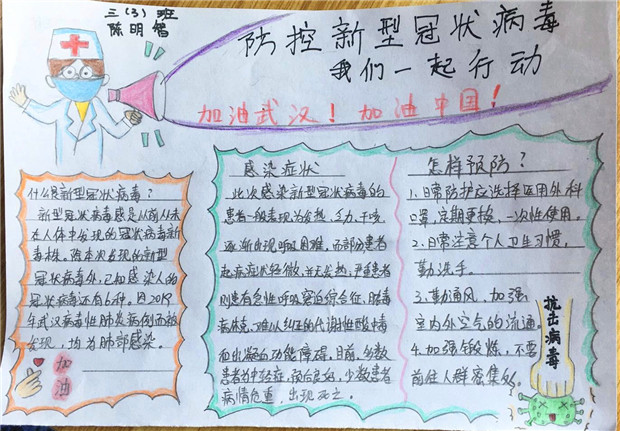 三(3)班
陈明智
防控新型冠状病毒
我们一起行动
加油武汉！加油中国！
什么是新型冠状病毒？
新型冠状病毒感是从前从未
在人体中发现的冠状病毒新
毒株。除本次发现的新型
冠状病毒外，已知感染人的
冠状病毒还有6种。因2019
年武汉病毒性肺炎病例而被
发现，均为肺部感染。
加
油
感染症状
此次感染新型冠状病毒的
患者一般表现为发热、乏力、干咳、
逐渐出现呼吸困难，而部分患者
起病症状轻微，并无发热，严重患者
则患有急性呼吸窘迫综合征、脓毒
症休克、难以纠正的代谢性酸中毒
而出凝血功能障碍。目前，多数
患者为中轻症，预后良好，少数患者
病情危重，出现死亡。
怎样预防？
1.日常防护应选择医用外科
口罩，定期更换，一次性使用。
2.日常注意个人卫生习惯，
勤洗手。
3.勤通风，加强
室内外空气的流通。
4.加强锻炼，不要
前往人群密集处。
抗击病毒